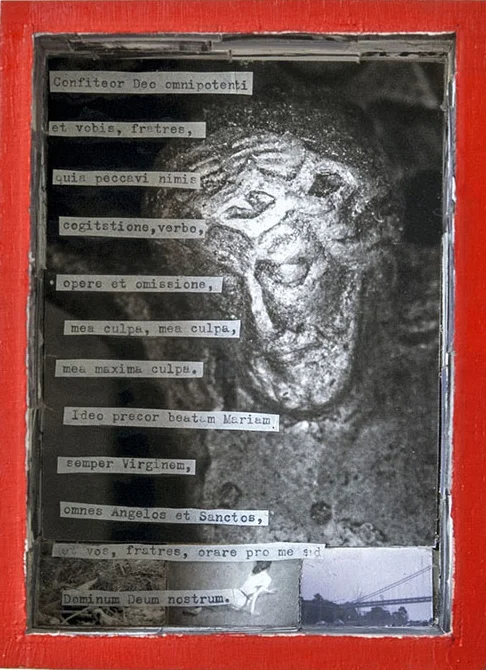 Confiteor Deo omnipotenti
et vobis, fratres,
quia peccavi nimis
cogitstione,verbo,
opere et omissione,
mea culpa, mea culpa,
mea maxima culpa.
Ideo precor beatam Mariam
semper Virginem,
omnes Angelos et Sanctos,
et vos, fratres, orare pro me ad
Dominum Deum nostrum.